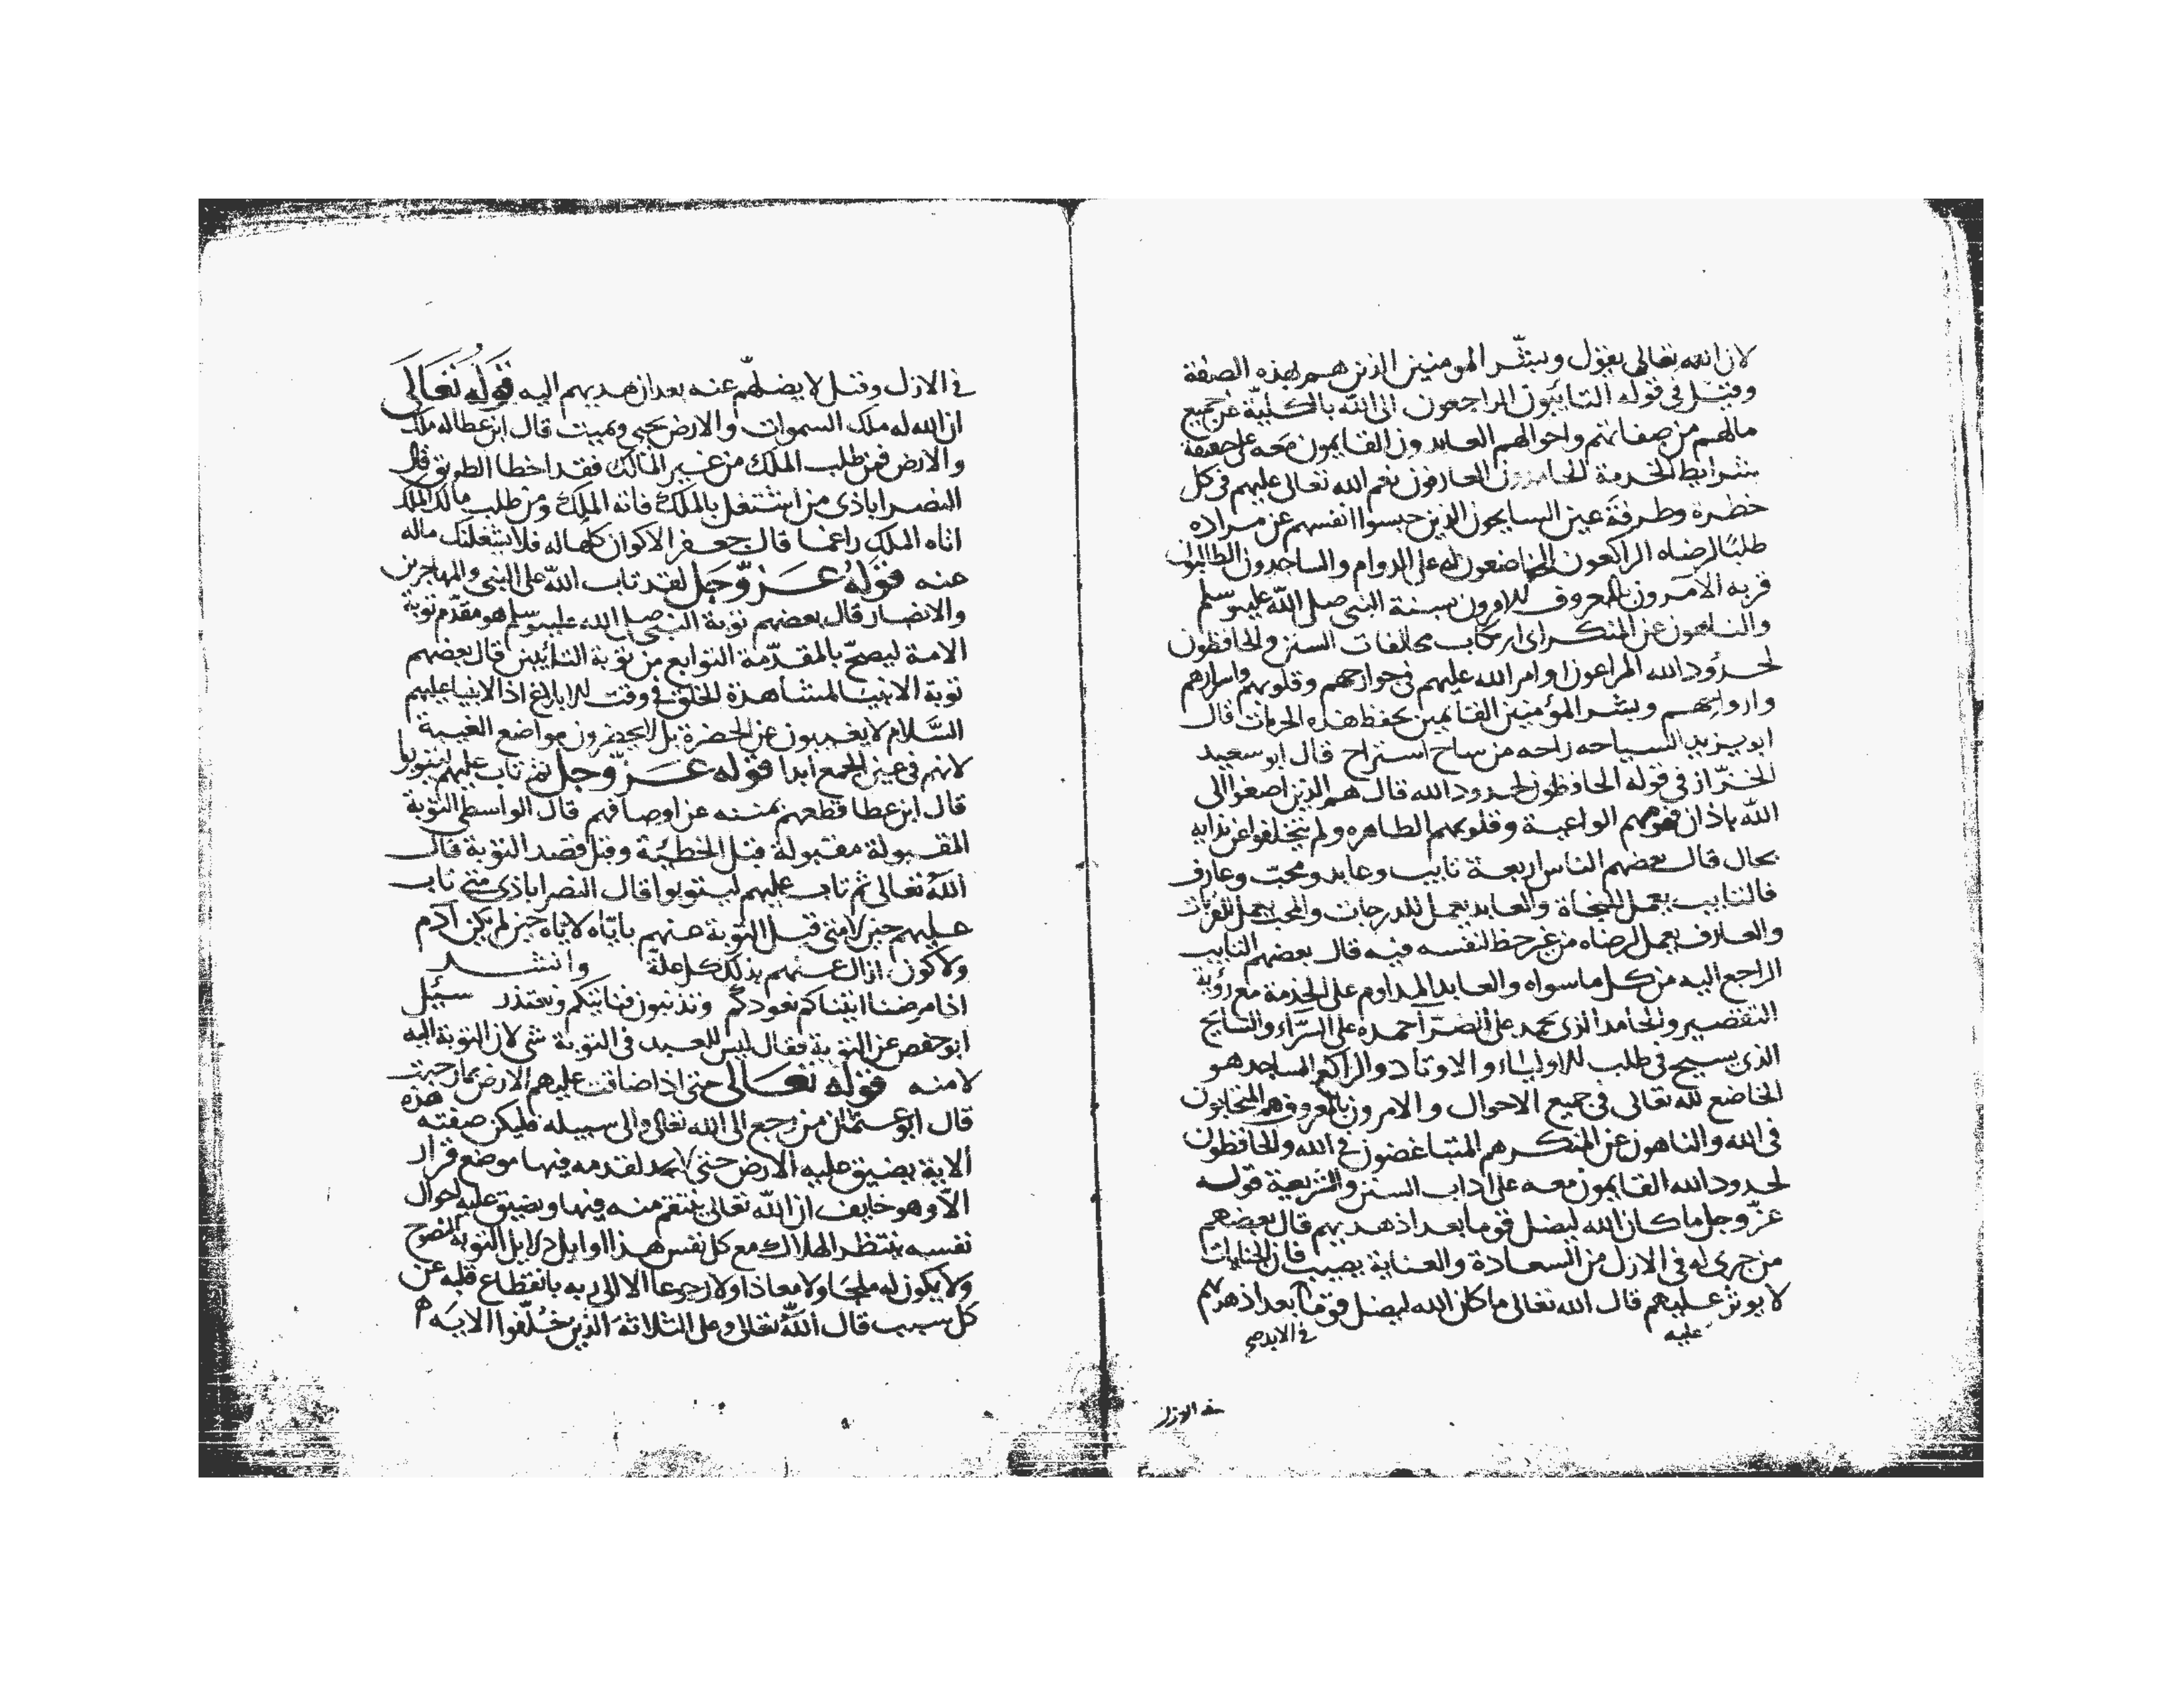 لان الله تعالى يقول وبشّر المومنين الذين هم بهذه الصفة
وقيل في قوله التايبون الراجعون الى الله بالكلية عن جميع
مالهم من صفاتهم واحوالهم العابدون القايمون معه على حقيقة
شرايط الخدمة الحامدون العارفون نعم الله تعالى عليهم في كل
خطرة وطرفة عين السايحون الذين حبسوا انفسهم عن مراده
طلبًا لرضاه الراكعون الخاضعون له على الدوام والساجدون الطالبون
قربه الآمرون بالمعروف الامرون بسنة النبي صلى الله عليه وسلم
والناهون عن المنكر اي ارتكاب مخالفات السنن والحافظون
لحدود الله المراعون اوامر الله عليهم في جوارحهم وقلوبهم واسرارهم
وارواحهم وبشر المؤمنين القايمين بحفظ هذه الحرمات قال
ابو يزيد السياحه راحه من ساح استراح قال ابو سعيد
الخرّاز في قوله الحافظون لحدود الله قال هم الذين اصغوا الى
الله باذان فهومهم الواعية وقلوبهم الطاهره ولم يتخلفوا عن ندايه
بحال قال بعضهم الناس اربعة تايب وعابد ومحبّ وعارف
فالتايب يعمل للنجاة والعابد يعمل للدرجات والمحب يعمل للقربات
والعارف يعمل لرضاه من غير حظ لنفسه فيه قال بعضهم التايب
الراجع اليه من كل ما سواه والعابد المداوم على الخدمة مع رؤية
التقصير والحامد الذي يحمد على الضرّآ حمده على السّرّاء والسايح
الذي يسيح في طلب الاولياء والاوتاد والراكع الساجد هو
الخاضع لله تعالى في جميع الاحوال والامرون بالمعروف هم المتحابون
في الله والناهون عن المنكر هم المتباغضون في الله والحافظون
لحدود الله القايمون معه على اداب السنن والشريعة قوله
عزّ وجل ما كان الله ليضل قوما بعد اذ هديهم قال بعضهم
من جرى له في الازل من السعادة والعناية نصيب فان الجنايات
لا يوثر عليهم قال الله تعالى ما كان الله ليضل قوما بعد اذ هديهم
عليه
في الازل
في الازل وقيل لا يضلّهم عنه بعد ان هديهم اليه قوله تعالى
ان الله له ملك السموات والارض يحيي ويميت قال ابن عطا له ملك
والارض فمن طلب الملك من غير المالك فقد اخطا الطريق قال
النصراباذي من اشتغل بالملك فاته الملك ومن طلب مالك الملك
اتاه الملك راغما قال جعفر الاكوان كلها له فلا يشغلنك ماله
عنه قوله عزّ وجل لقد تاب الله على النبي والمهاجرين
والانصار قال بعضهم توبة النبي صلى الله عليه وسلم هو مقدّم توبة
الامة ليصحّ بالمقدّمة التوابع من توبة التائبين قال بعضهم
توبة الانبيا لمشاهدة الخلق في وقت الابلاغ اذ الانبيا عليهم
السّلام لا يغيبون عن الحضرة بل لا يحضرون مواضع الغيبة
لانهم في عين الجمع ابدا قوله عزّ وجل ثم تاب عليهم ليتوبوا
قال ابن عطا قطعهم بمننه عن اوصافهم قال الواسطي التوبة
المقبولة مقبولة قبل الخطيئة وقبل قصد التوبة قال
الله تعالى ثم تاب عليهم ليتوبوا قال النصراباذي متى تاب
عليهم حين لا متى قبل التوبة عنهم باياه لاياه حين لم يكن آدم
ولا كون ازال عنهم بذلك كل علّة وانشد
اذا مرضنا اتيناكم نعودكم وتذنبون فناتيكم ونعتذر سئيل
ابو حفص عن التوبة فقال ليس للعبد في التوبة شي لان التوبة اليه
لا منه قوله تعالى حتى اذا ضاقت عليهم الارض بما رحبت
قال ابو عثمان من رجع الى الله تعالى والى سبيله فليكن صفته هذه
الاية يضيق عليه الارض حتى لا يجد لقدمه فيها موضع قرار
الا وهو خايف ان الله تعالى ينتقم منه فيها ويضيق عليه احوال
نفسه ينتظر الهلاك مع كل نفس هذا اوايل دلايل التوبة النصوح
ولا يكون له ملجا ولا معاذا ولا رجوعا الا الى ربه بانقطاع قلبه عن
كل سبب قال الله تعالى وعلى الثلاثة الذين خلّفوا الايه